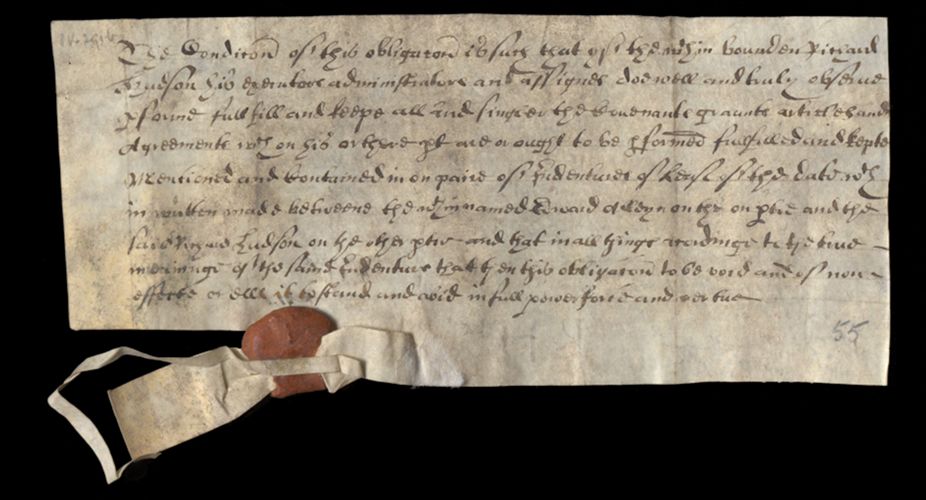 The Condicon of this obligacon is such that yf the wthin bounden Richard
Hudson his executors administrators and assignes doe well and truly observe
pforme fullfill and keepe all and singler the Covenants graunts articles and
Agreements wch on his or there pt are or ought to be pformed fullfilled and kepte
Mentioned and Contained in on paire of Indentures of Lease of the date wth
in written made betweene the wthin named Edward Alleyn on the on ptie and the
said Richard Hudson on the other ptie and that in all things accordinge to the true
meaninge of the same Indenture that then this obligacon to be void and of non
effecte or ells it to stand and abid in full power force and vertue
55